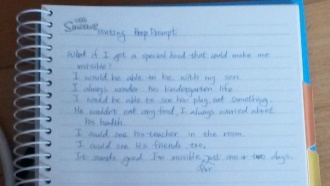 Writing Prep Prompt
What if I got a special hood that could make me
invisible!
I would be able to be with my son.
I always wonder his kindergarten life.
I would be able to see his play, eat something.
He wouldn't eat any food, I always worried about
his health.
I could see his teacher in the room.
I could see his friends too.
It sounds good I'm invisible just one or two days.